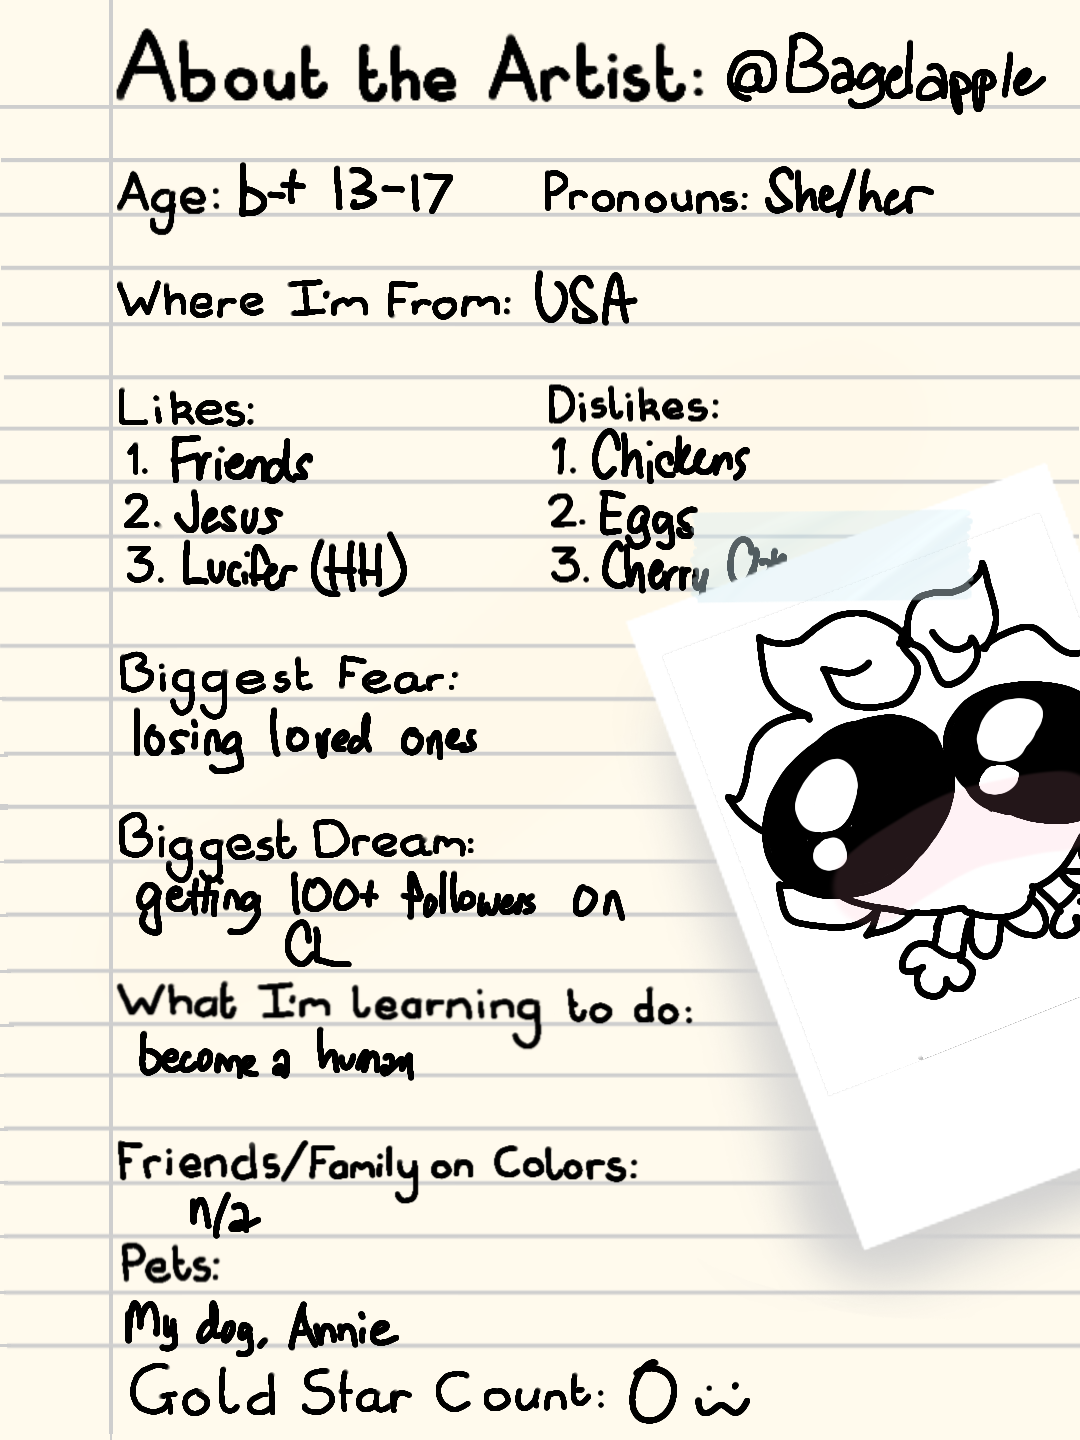 About the Artist: @Bagelapple
Age: b-t 13-17 Pronouns: She/her
Where I'm From: USA
Likes: Dislikes:
1. Friends 1. Chickens
2. Jesus 2. Eggs
3. Lucifer (HH) 3. Cherry
Biggest Fear:
losing loved ones
Biggest Dream:
getting 100+ followers on
CL
What I'm learning to do:
become a human
Friends/Family on Colors:
n/a
Pets:
My dog, Annie
Gold Star Count: 0 :̈